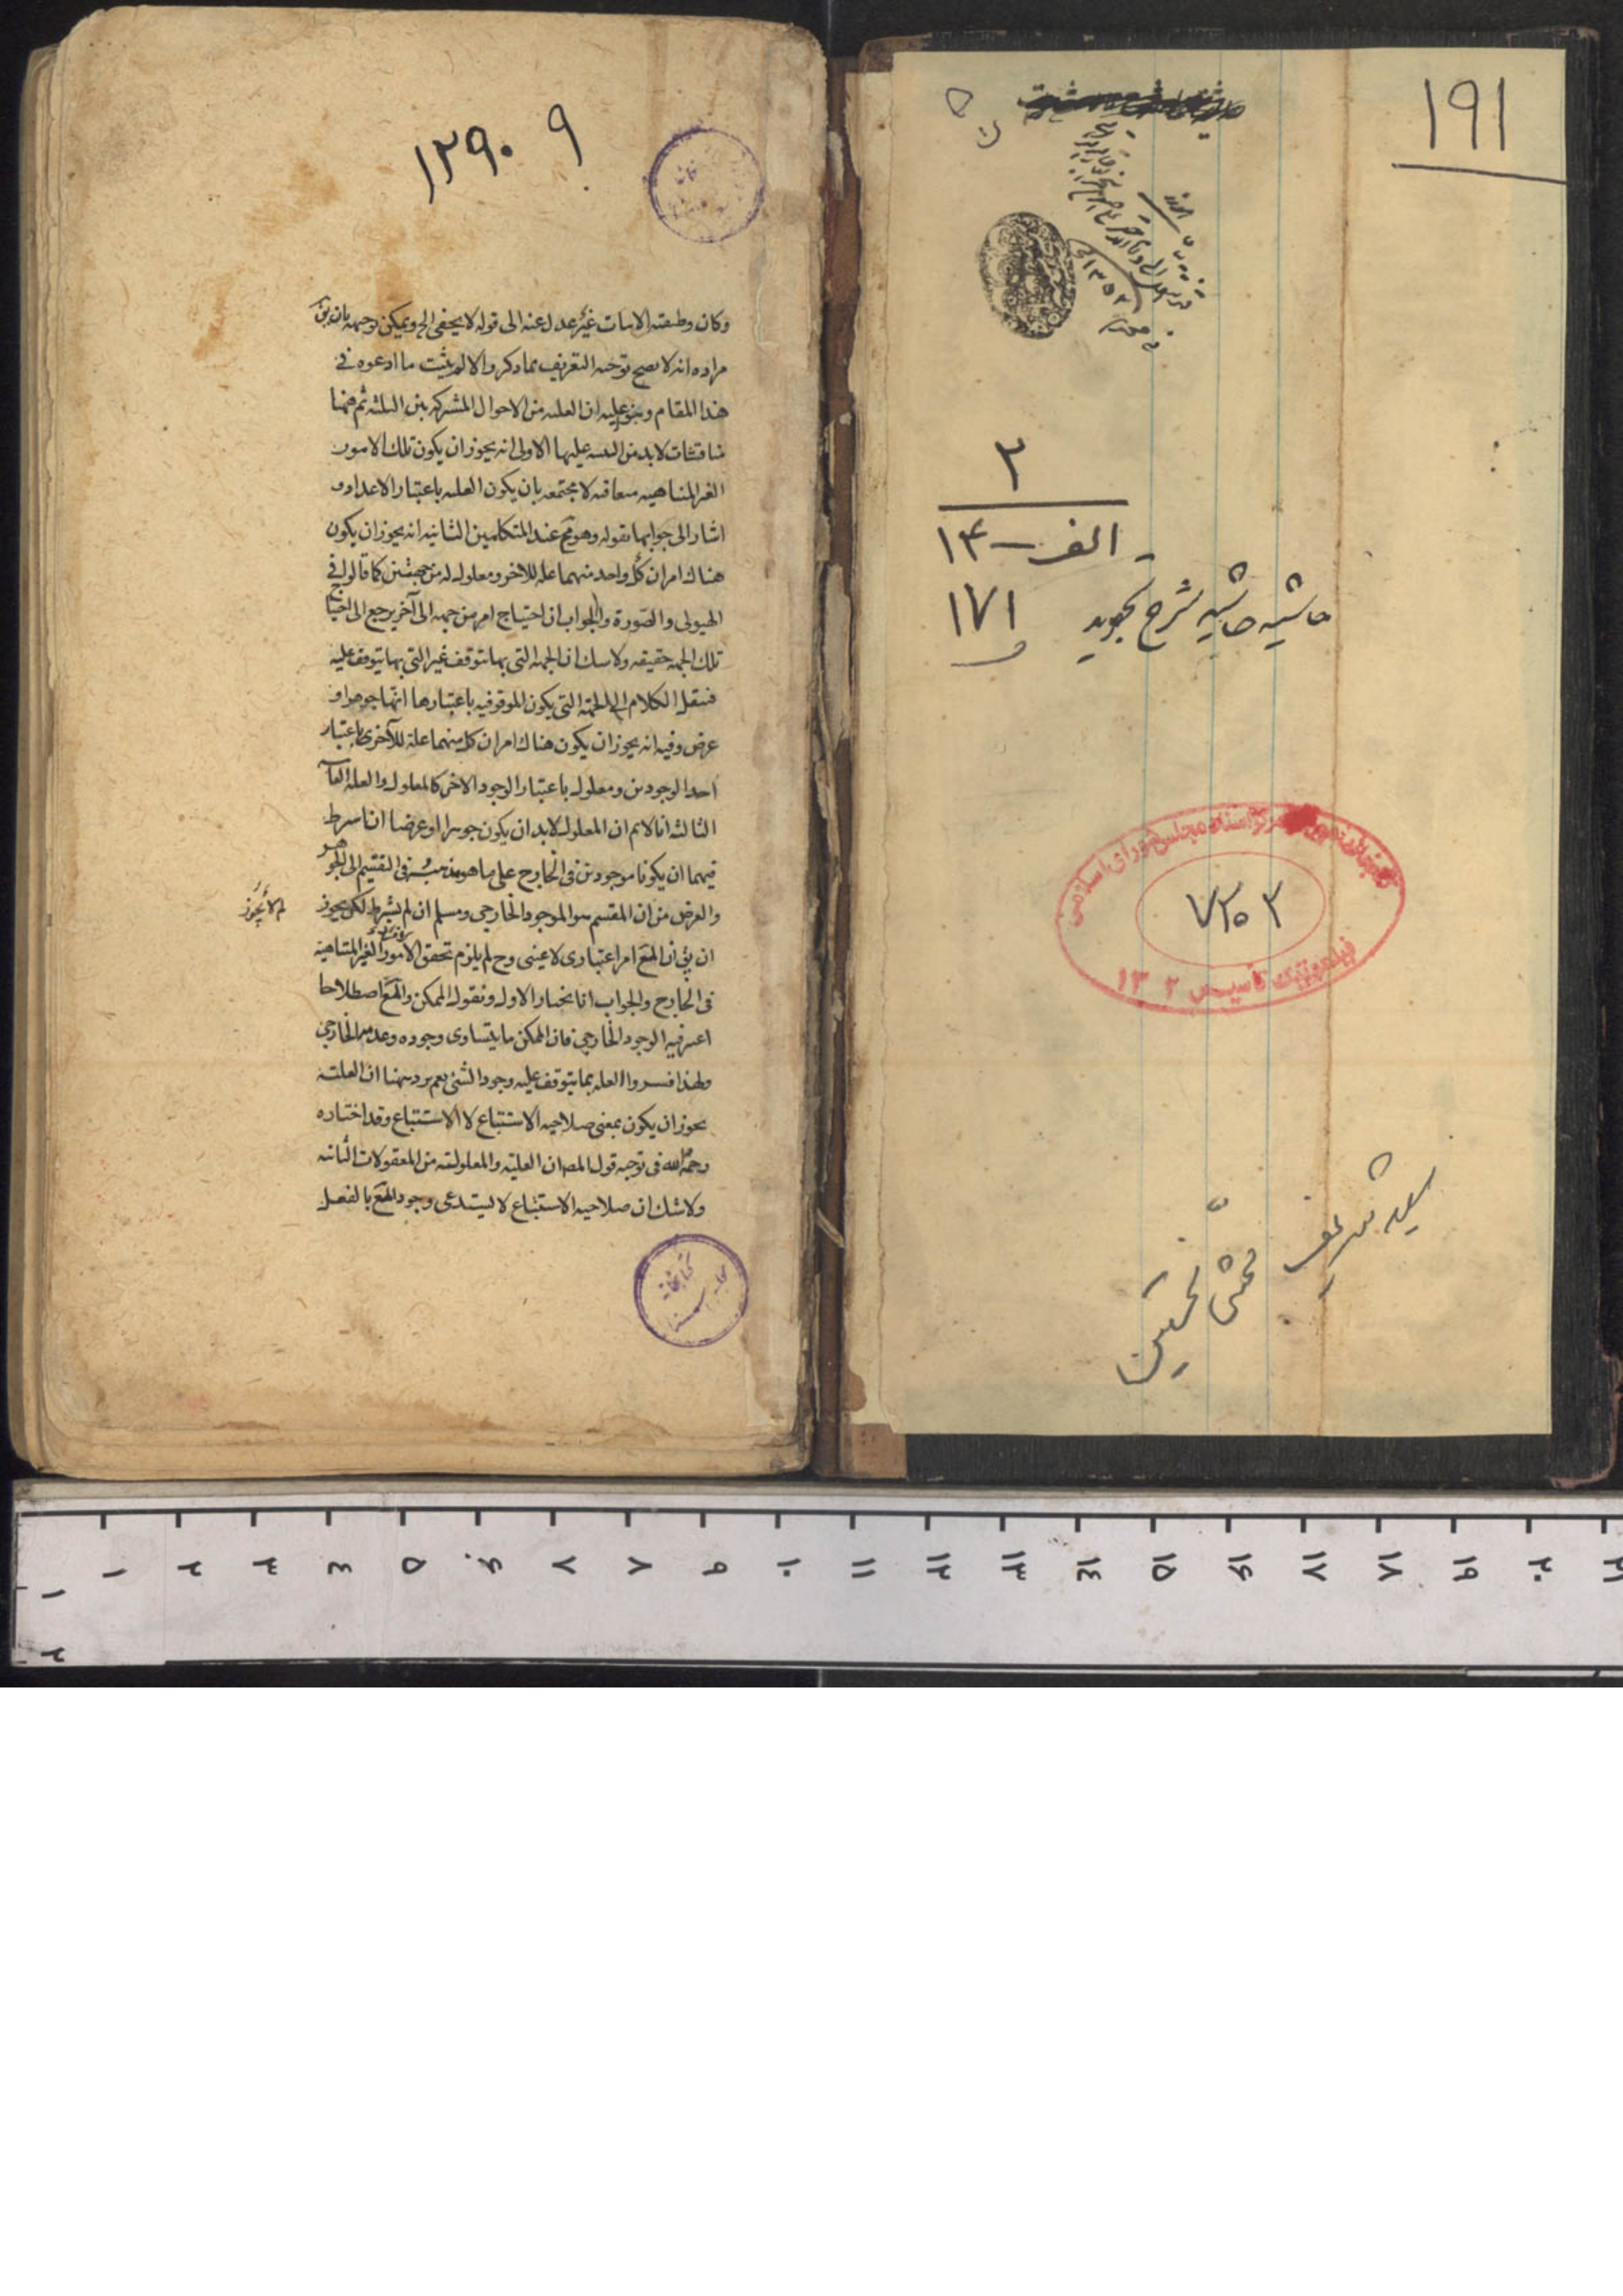 ١٩١
٢
الف - ١۴
١٧١
حاشیه حاشیه شرح تجرید
کتابخانه موزه و مرکز اسناد مجلس شورای اسلامی
٧٢٥٣
تأسیس ١٣٠٢
سید شریف
محشی
١٢٩٠ ٩
وكان وظيفته الاثبات غير عدل عنه الى قوله لا يخفى الخ ويمكن توجيهه بان يق
مراده انه لا يصح توجيه التعريف بما ذكر والا لم يثبت ما ادعوه في
هذا المقام وبنو عليه ان العليه من الاحوال المشتركه بين الثلثه ثم ههنا
مناقشات لابد من التنبيه عليها الاولى انه يجوز ان يكون تلك الامور
الغير المتناهيه متعاقبه لا مجتمعه بان يكون العليه باعتبار الاعداد و
اشار الى جوابها بقوله وهو مح عند المتكلمين الثانيه انه يجوز ان يكون
هناك امران كل واحد منهما عله للاخر ومعلول له من جهتين كما قالوا في
الهيولى والصورة والجواب ان احتياج امر من جهه الى آخر يرجع الى احتياج
تلك الجهه حقيقه ولا شك ان الجهه التي بها يتوقف غير التي بها يتوقف عليه
فننقل الكلام الى الجهة التي يكون الموقوفيه باعتبارها انها جوهر او
عرض وفيه انه يجوز ان يكون هناك امران كل منهما علة للآخر باعتبار
احد الوجودين ومعلول باعتبار الوجود الاخر كالمعلول والعله الغائيه
الثالثه انا لانم ان المعلول لابد ان يكون جوهرا او عرضا انا نشرط
فيهما ان يكونا موجودين في الخارج على ما هو مذهب في التقسيم الى الجوهر
والعرض من ان المقسم هو الموجود الخارجي ومسلم ان لم يشرط لكن يجوز
لم لا يجوز
ان يق ان المع امر اعتبارى لا عينى وح لم يلزم تحقق الامور الغير المتناهيه
في الخارج والجواب انا نختار الاول ونقول الممكن والمع اصطلاحا
اعتبر فيه الوجود الخارجي فان الممكن ما يتساوى وجوده وعدمه الخارجي
ولهذا فسروا العله بما يتوقف عليه وجود الشئ نعم يرد ههنا ان العلية
يجوز ان يكون بمعنى صلاحيه الاستتباع لا الاستتباع وقد اختاره
رحمه الله في توجيه قول المص ان العليه والمعلوليه من المعقولات الثانيه
ولا شك ان صلاحيه الاستتباع لا يستدعى وجود المع بالفعل
کتابخانه
١ ٢ ٣ ٤ ٥ ۶ ٧ ٨ ٩ ١٠ ١١ ١٢ ١٣ ١٤ ١٥ ١۶ ١٧ ١٨ ١٩ ٢٠ ٢١
١
٢